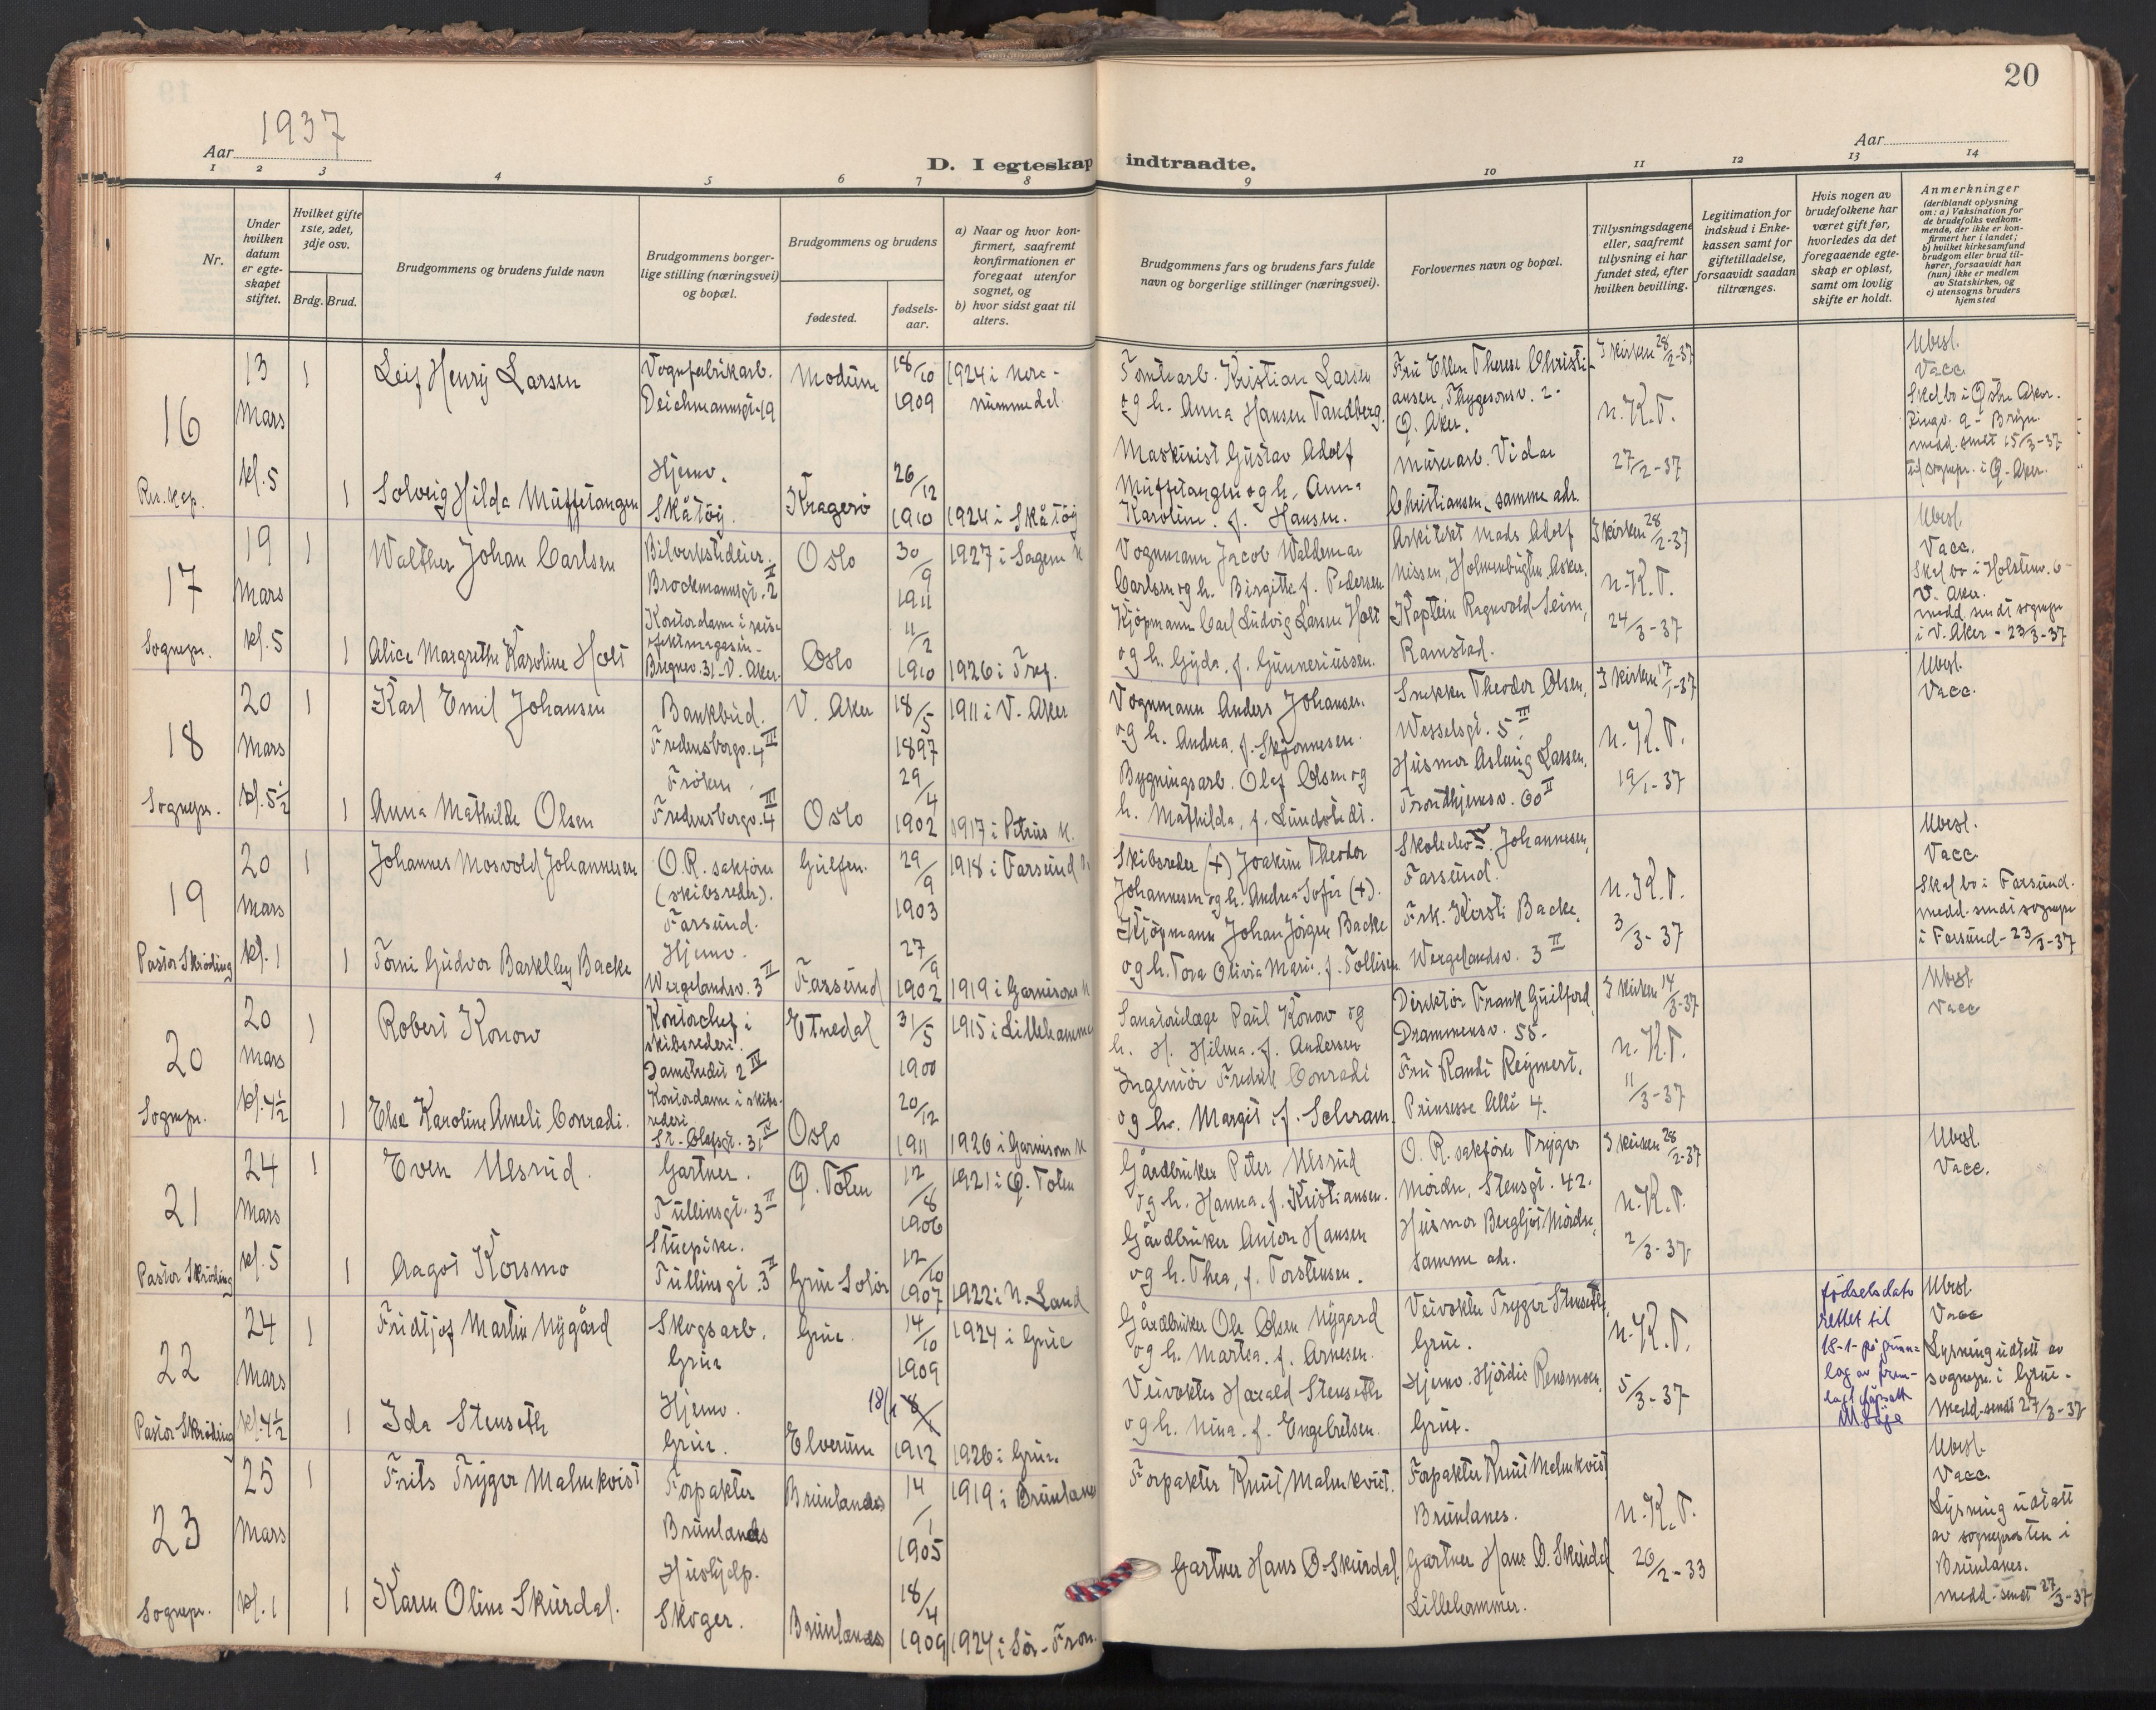 20
1937
Aar
Aar
D. I egteskap indtraadte.
1 2 3 4 5 6 7 8 9 10 11 12 13 14
Nr.
Under hvilken datum er egteskapet stiftet.
Hvilket gifte 1ste, 2det, 3dje osv.
Brdg. Brud.
Brudgommens og brudens fulde navn
Brudgommens borgerlige stilling (næringsvei) og bopæl.
Brudgommens og brudens
fødested.
fødselsaar.
a) Naar og hvor konfirmert, saafremt konfirmationen er foregaat utenfor sognet, og
b) hvor sidst gaat til alters.
Brudgommens fars og brudens fars fulde navn og borgerlige stillinger (næringsvei).
Forlovernes navn og bopæl.
Tillysningsdagene eller, saafremt tillysning ei har fundet sted, efter hvilken bevilling.
Legitimation for indskud i Enkekassen samt for giftetilladelse, forsaavidt saadan tiltrænges.
Hvis nogen av brudefolkene har været gift før, hvorledes da det foregaaende egteskap er opløst, samt om lovlig skifte er holdt.
Anmerkninger
(deriblandt oplysning om: a) Vaksination for de brudefolks vedkommende, der ikke er konfirmert her i landet; b) hvilket kirkesamfund brudgom eller brud tilhører, forsaavidt han (hun) ikke er medlem av Statskirken, og c) utensogns bruders hjemsted
16
Res. kap.
13 Mars kl. 5
1
Leif Henry Larsen
Vognfabrikarb.
Deichmannsgt. 19
Modum
18/10 1909
1924 i Nore - nummedal
Tomtearb. Kristian Larsen
og h. Anna Hansen Tandberg.
Fru Ellen Therese Christi-
ansen, Thygesonsv. 2.
Ø. Aker.
I kirken 28/2-37
n. K. T.
27/2-37
Ubesl.
Vacc.
Skal bo i Østre Aker.
Ringv. 9 - Bryn.
medd. sendt 15/3-37
til sognepr. i Ø. Aker.
1
Solveig Hilda Muffetangen
Hjemv.
Skåtøy.
Kragerø
26/12 1910
1924 i Skåtøy
Maskinist Gustav Adolf
Muffetangen og h. Anna
Karoline. f. Hansen.
Murerarb. Vidar
Christiansen, samme adr.
17
Sognepr.
19 Mars kl. 5
1
Walther Johan Carlsen
Bilverkstedeier.
Brockmannsgt. 2 II
Oslo
30/9 1911
1927 i Sagene K
Vognmann Jacob Waldemar
Carlsen og h. Birgitte f. Pedersen
Arkitekt Mads Adolf
Nissen, Holmenbugten, Asker.
I kirken 28/2-37
n. K. T.
24/3-37
Ubesl.
Vacc.
Skal bo i Holstenv. 6
V. Aker.
medd. sendt sognepr.
i V. Aker - 23/3-37
1
Alice Margrethe Karoline Holt
Kontordame i reise
effektmagasin.
Bregnev. 31 - V. Aker.
Oslo
11/2 1910
1926 i Tref.
Kjøpmann Carl Ludvig Larsen Holt
og h. Gyda. f. Gunneriussen.
Kaptein Ragnvold Seim,
Ramstad.
18
Sognepr.
20 Mars kl. 5 1/2
1
Karl Emil Johansen
Bankbud.
Fredensborgv. 4 III
V. Aker
18/5 1897
1911 i V. Aker
Vognmann Anders Johansen
og h. Andrea. f. Skjønnesen.
Snekker Theodor Olsen,
Wesselsgt. 5 III
I kirken 17/1-37
n. K. T.
19/1-37
Ubesl.
Vacc.
1
Anna Mathilde Olsen
Frøken
Fredensborgv. 4 III
Oslo
29/4 1902
1917 i Petrus K.
Bygningsarb. Olaf Olsen og
h. Mathilda, f. Lundstedt.
Husmor Aslaug Larsen.
Trondhjemsv. 60 II
19
Pastor Skrøding
20 Mars kl. 1
1
Johannes Mosvold Johannessen
O.R. sakfører
(skibsreder).
Farsund.
Gulfen.
29/9 1903
1918 i Farsund
Skibsreder (+) Joakim Theodor
Johannesen og h. Andrea Sofie (+).
Johannesen,
Farsund.
n. K. T.
3/3-37
Ubesl.
Vacc
Skal bo i Farsund.
medd. sendt sognepr
i Farsund - 23/3-37
1
Torni Gudvor Barkelley Backe
Hjemv.
Wergelandsv. 3 II
Farsund
27/9 1902
1919 i Garnisons K
Kjøpmann Johan Jörgen Backe
og h. Tora Olivia Marie. f. Tollisen
Frk. Kirsti Backe,
Wergelandsv. 3 II
20
Sognepr.
20 Mars kl. 4 1/2
1
Robert Konow
Kontorchef i
skibsrederi.
Damstredet 2 IV
Etnedal
31/5 1900
1915 i Lillehammer
Sanatorielæge Paul Konow og
h. H. Hilma. f. Andersen
Direktør Frank Guilford,
Drammensv. 55.
I kirken 14/3-37
n. K. T.
11/3-37
Ubesl
Vacc
1
Else Karoline Ameli Conradi.
Kontordame i skibs-
rederi
St. Olafsgt. 31 IV
Oslo
20/12 1911
1926 i Garnisons K
Ingeniør Fredrik Conradi
og h. Margit. f. Schram
Fru Randi Reymert,
Prinsesse Allé 4.
21
Pastor Skrøding
24 Mars kl. 5
1
Even Ulsrud.
Gartner.
Tullinsgt. 3 II
Ø. Toten
12/8 1906
1921 i Ø. Toten
Gårdbruker Peter Ulsrud
og h. Hanna. f. Kristiansen.
O. R. sakfører Trygve
Mørdre, Stensgt. 42.
I kirken 28/2-37
n. K. T.
2/3-37
Ubesl.
Vacc.
1
Aagot Korsmo
Stuepike.
Tullinsgt. 3 II
Grue Solør
12/10 1907
1922 i N. Land
Gårdbruker Anton Hansen
og h. Thea, f. Torstensen.
Husmor Bergljot Mørdre,
samme adr.
22
Pastor Skrøding
24 Mars kl. 4 1/2
1
Fridtjof Martin Nygård
Skogsarb.
Grue
Grue.
14/10 1909
1924 i Grue
Gårdbruker Ole Olsen Nygård
og h. Martea. f. Arnesen.
Veivokter Trygve Stenseth,
Grue.
n. K. T.
5/3-37
fødselsdato
rettet til
18-1- på grunn-
lag av frem-
lagt dåpsatt
Ubesl.
Vacc
Lysning utstett av
sognepr. i Grue.
Medd. sendt 27/3-37
1
Ida Stenseth
Hjemv.
Grue.
Elverum
18/1 8/1 1912
1926 i Grue
Veivokter Harald Stenseth
og h. Nina. f. Engebretsen.
Hjemv. Hjördis Rensmoen,
Grue.
23
Sognepr.
25 Mars kl. 1
1
Frits Trygve Malmkvist
Forpakter
Brunlanes
Brunlanes
14/1 1905
1919 i Brunlanes
Forpakter Knut Malmkvist.
Forpakter Knut Malmkvist
Brunlanes.
n. K. T.
20/2-33
Ubesl.
Vacc.
Lysning utstatt
av sognepresten i
Brunlanes.
medd. sendt 27/3-37
1
Karen Oline Skurdal.
Hushjelp.
Skoger.
Brunlanes
18/4 1909
1924 i Sør-Fron.
Gartner Hans O. Skurdal.
Gartner Hans O. Skurdal
Lillehammer.